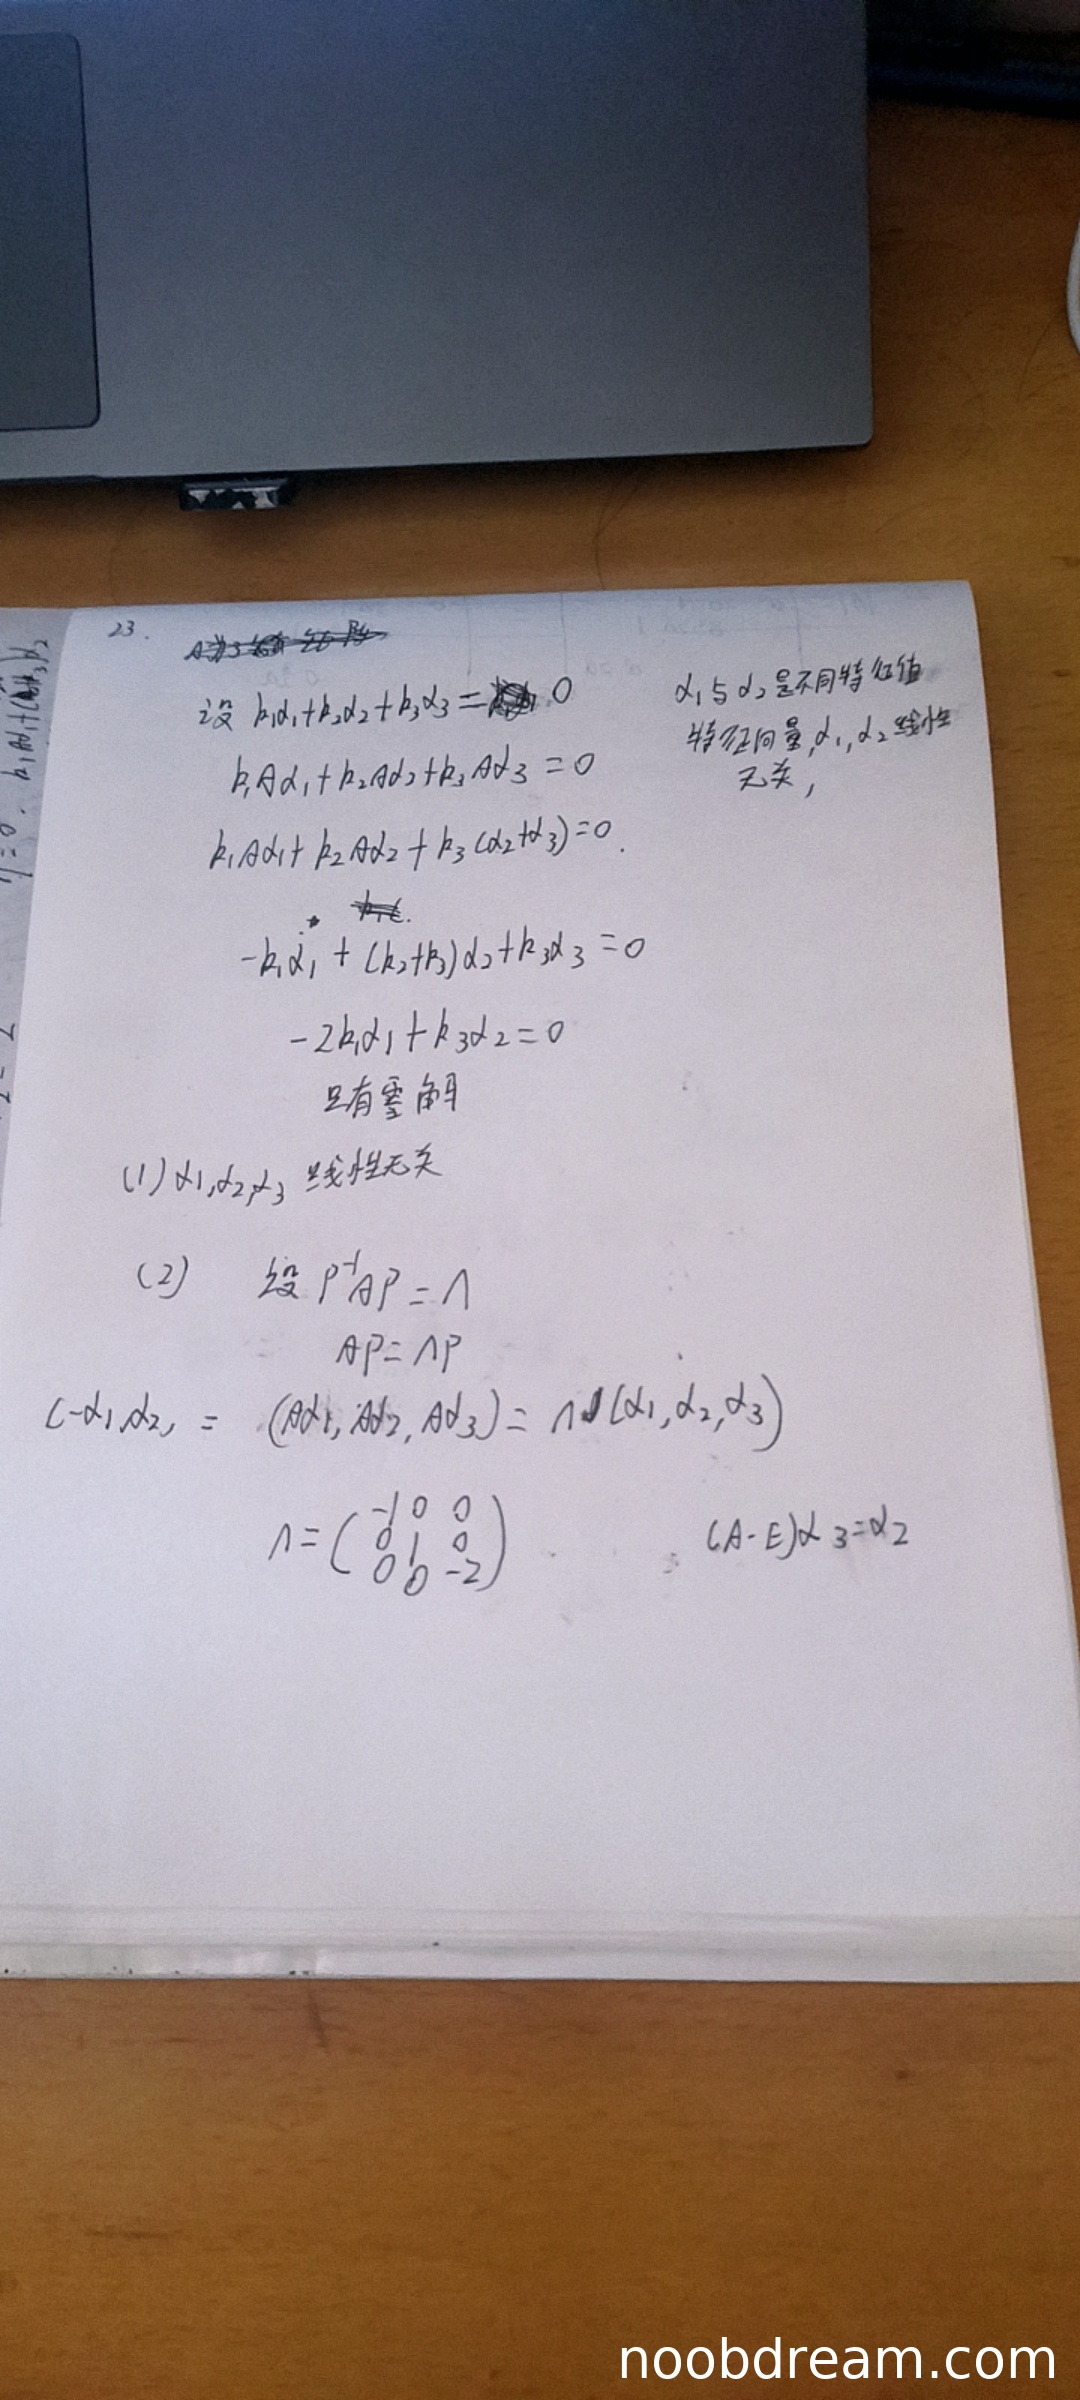 23.
设 k₁α₁+k₂α₂+k₃α₃= 0
k₁Aα₁+k₂Aα₂+k₃Aα₃=0
k₁Aα₁+k₂Aα₂+k₃(α₂+α₃)=0.
-k₁α₁+(k₂+k₃)α₂+k₃α₃=0
-2k₁α₁+k₃α₂=0
只有零解
α₁与α₂是不同特征值
特征向量,α₁,α₂线性
无关,
(1)α₁,α₂,α₃ 线性无关
(2) 设 P⁻¹AP=Λ
AP=ΛP
(-α₁,α₂, = (Aα₁,Aα₂,Aα₃)=Λ(α₁,α₂,α₃)
Λ=(-1 0 0
0 1 0
0 0 -2)
(A-E)α₃=α₂
k₁Aα₁+
η=0.
noobdream.com